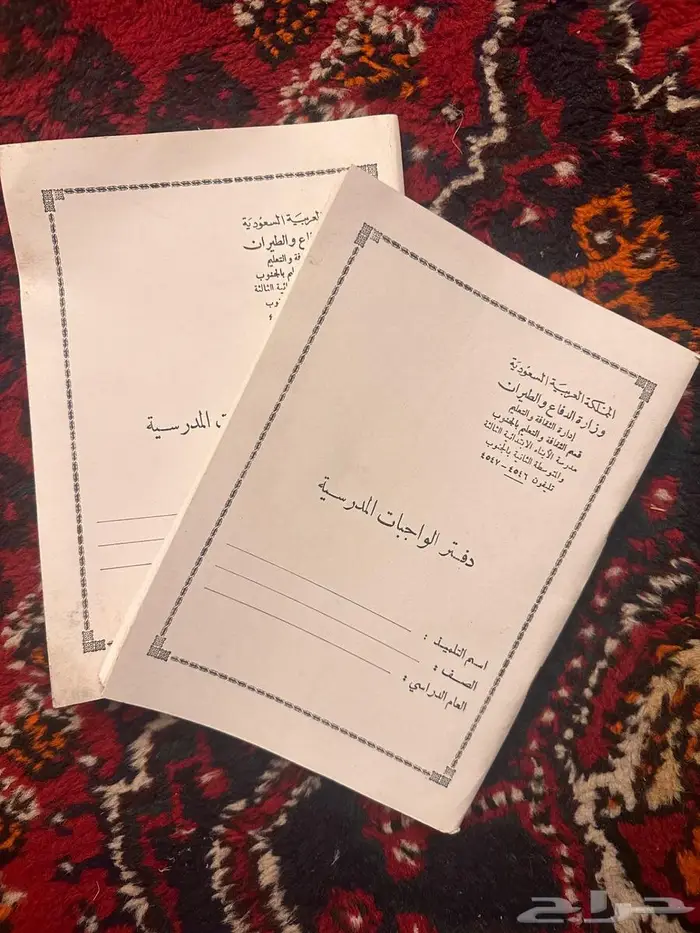 المملكة العربية السعودية
وزارة الدفاع والطيران
إدارة الثقافة والتعليم
قسم الثقافة والتعليم بالجنوب
مدرسة الأبناء الابتدائية الثالثة
والمتوسطة الثانية بالجنوب
تليفون ٤٥٤٦ - ٤٥٤٧
دفتر الواجبات المدرسية
اسم التلميذ :
الصف :
العام الدراسي :
العربية السعودية
والطيران
والتعليم
بالجنوب
الثالثة
المدرسية
حراج